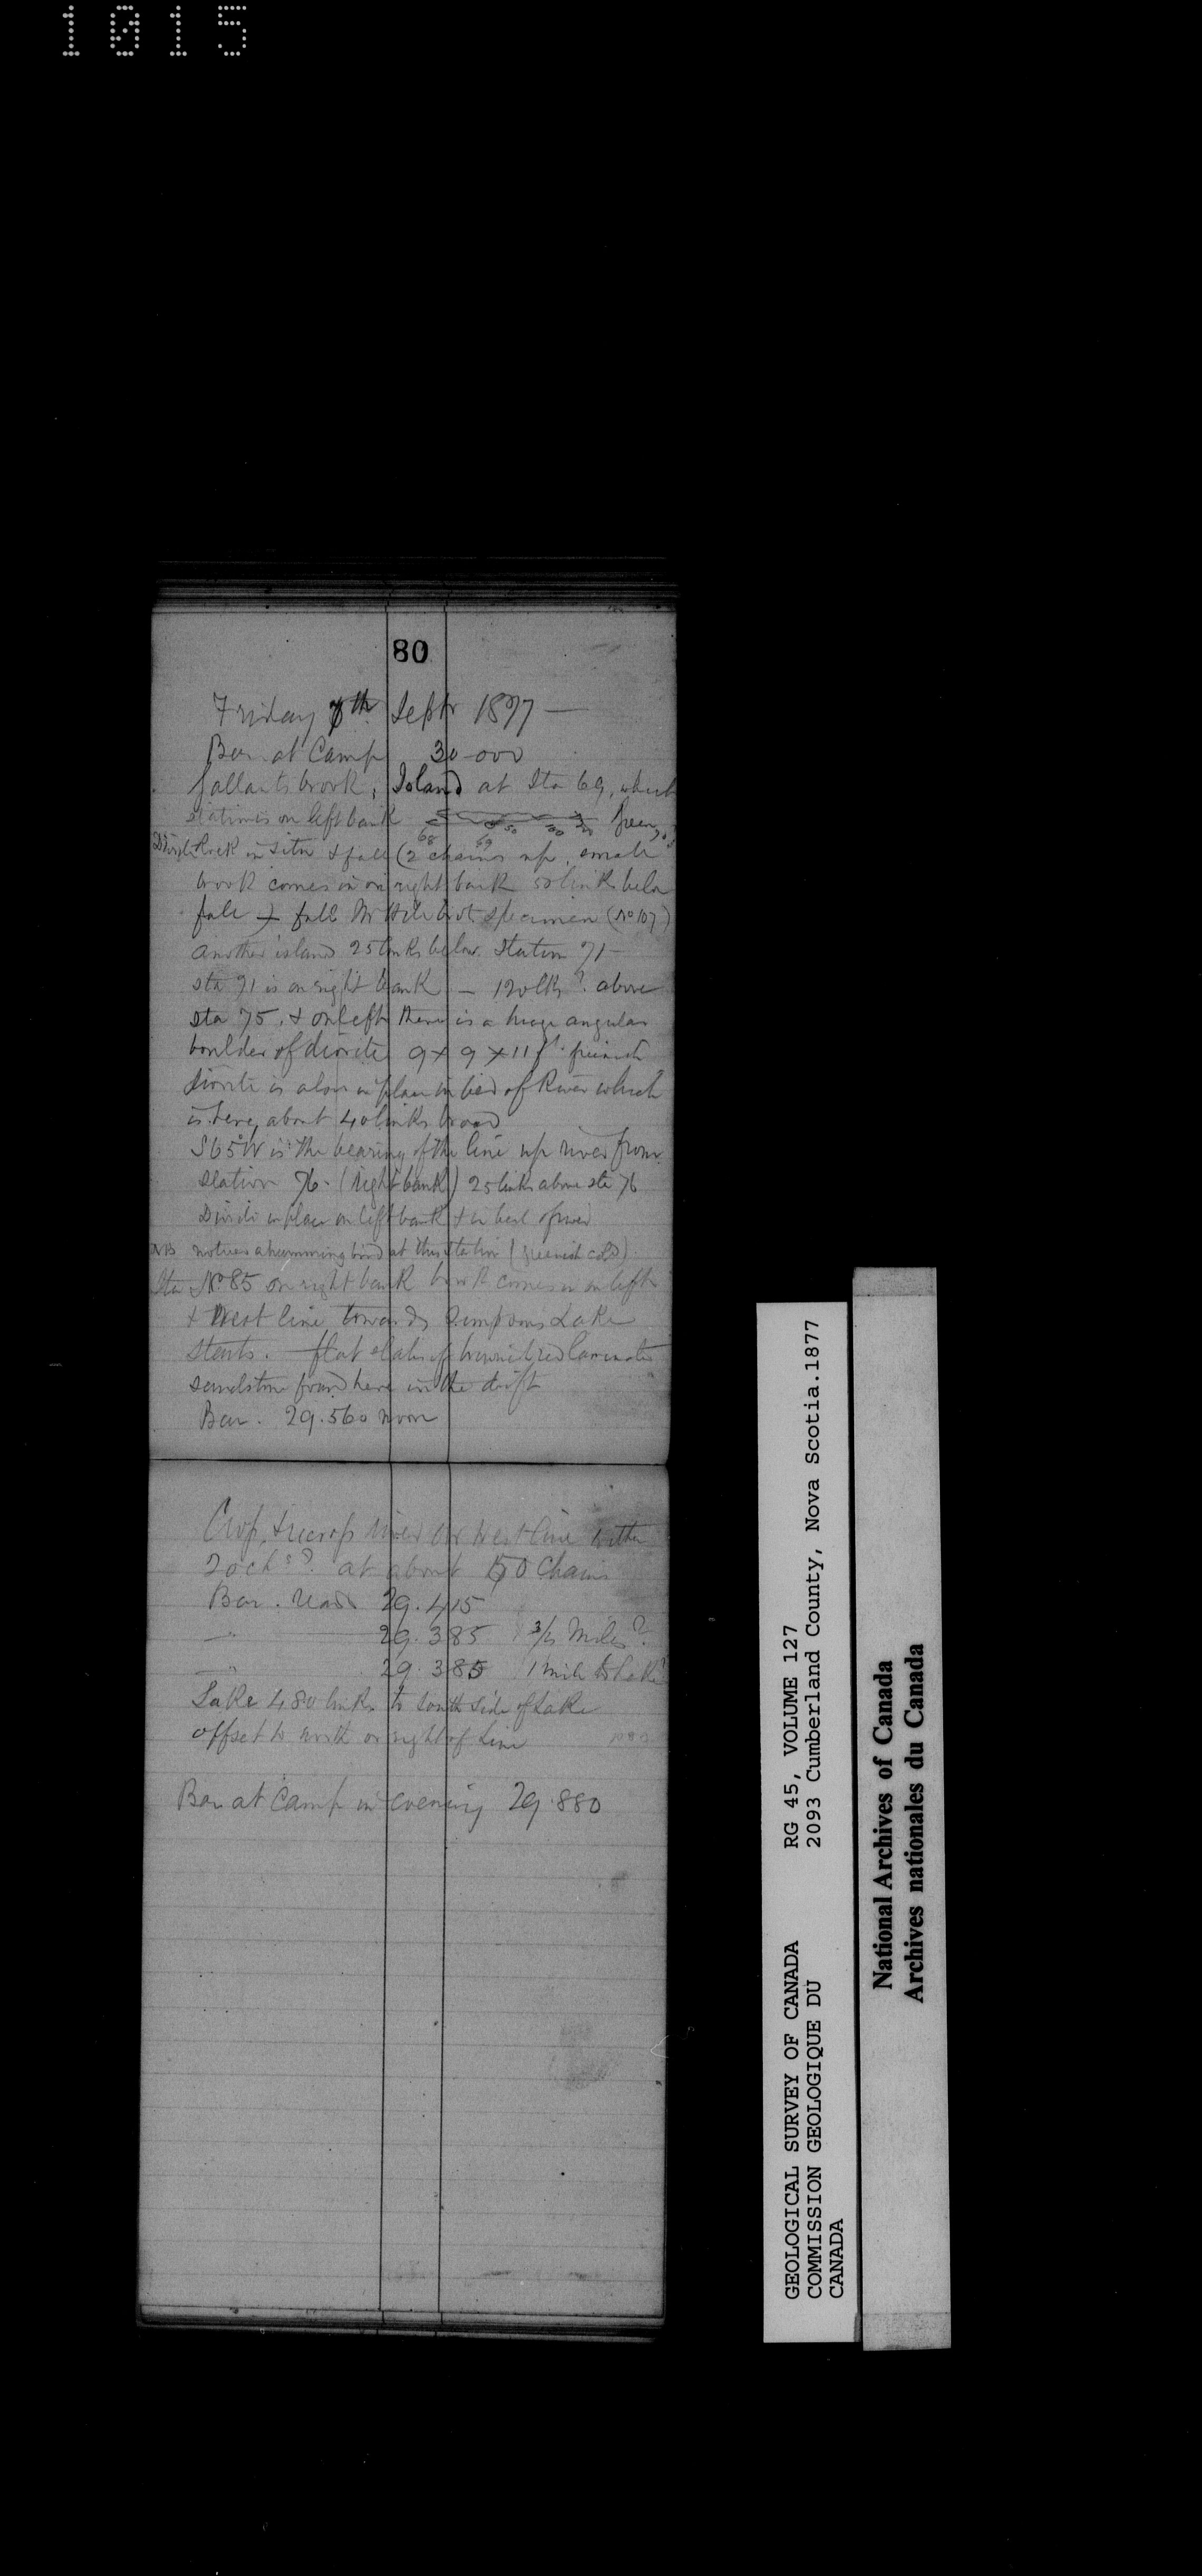 1015
80
Friday 7th Septr 1877 —
Bar at Camp 30.000
Gallants brook, Island at Sta 69, which
station is on left bank
68 69 50 100
Diorite Rock in situ & fall (2 chains up, small
brook comes in on right bank 50 links below
fall) fall specimen (No 107)
another island 25 links below station 71 —
sta 71 is on right bank — 120 lks? above
sta 75, & on left there is a huge angular
boulder of diorite 9 x 9 x 11 ft.
diorite is also in place in bed of River which
is here about 40 links broad
S65°W is the bearing of the line up river from
station 76 - (right bank) 25 links above sta 76
Diorite in place on left bank & in bed of river
NB notices a humming bird at this station (greenish cold)
Sta No 85 on right bank brook comes in on left
& West line towards Simpsons Lake
starts. flat slabs of laminated
sandstone found here in the drift
Bar. 29.560 noon
Crop, & recross river on West line
20 chs? at about 50 Chains
Bar. read 29.415
—"— 29.385 3/4 Miles?
—"— 29.385 1 mile to Lake?
Lake 480 links to south side of Lake
offset to north or right of line
Bar at Camp in evening 29.880
GEOLOGICAL SURVEY OF CANADA RG 45, VOLUME 127
COMMISSION GEOLOGIQUE DU 2093 Cumberland County, Nova Scotia.1877
CANADA
National Archives of Canada
Archives nationales du Canada